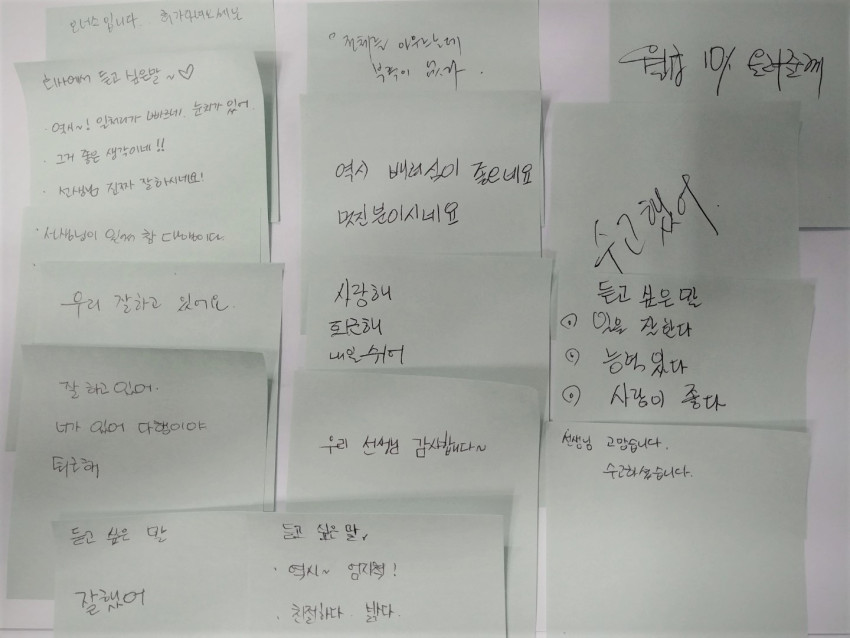 회사에서 듣고 싶은말~♡
· 역시~! 일처리가 빠르네. 눈치가 있어.
· 그거 좋은 생각이네!!
· 선생님 진짜 잘하시네요!
· 선생님이 있어서 참 다행이다.
우리 잘하고 있어요.
잘 하고 있어.
너가 있어 다행이야
퇴근해
듣고 싶은 말
잘했어
전체를 아우르는데
부족이 없다.
역시 배려심이 좋은네요
멋진분이시네요
사랑해
퇴근해
내일 쉬어
우리 선생님 감사합니다~
듣고 싶은 말,
· 역시~ 엄지척!
· 친절하다. 밝다.
월급 10% 올려줄께
수고했어.
듣고 싶은말
⊙ 일을 잘한다
⊙ 능력있다
⊙ 사람이 좋다
선생님 고맙습니다.
수고하셨습니다.